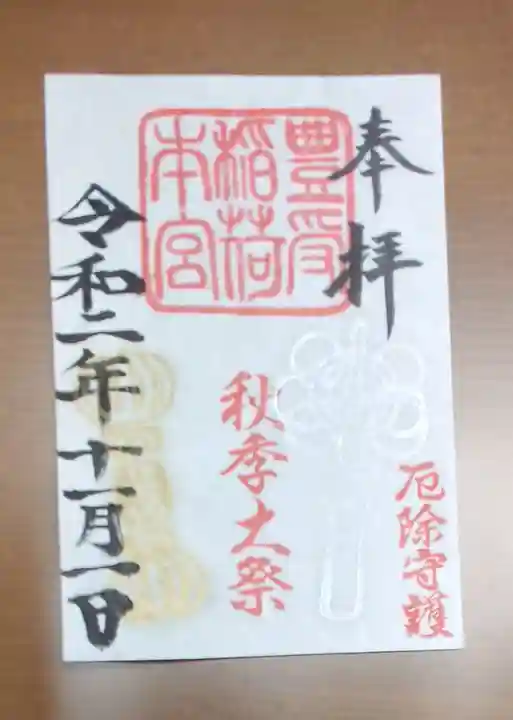 奉拝
厄除守護
豊受
稲荷
本宮
秋季大祭
令和二年十一月一日